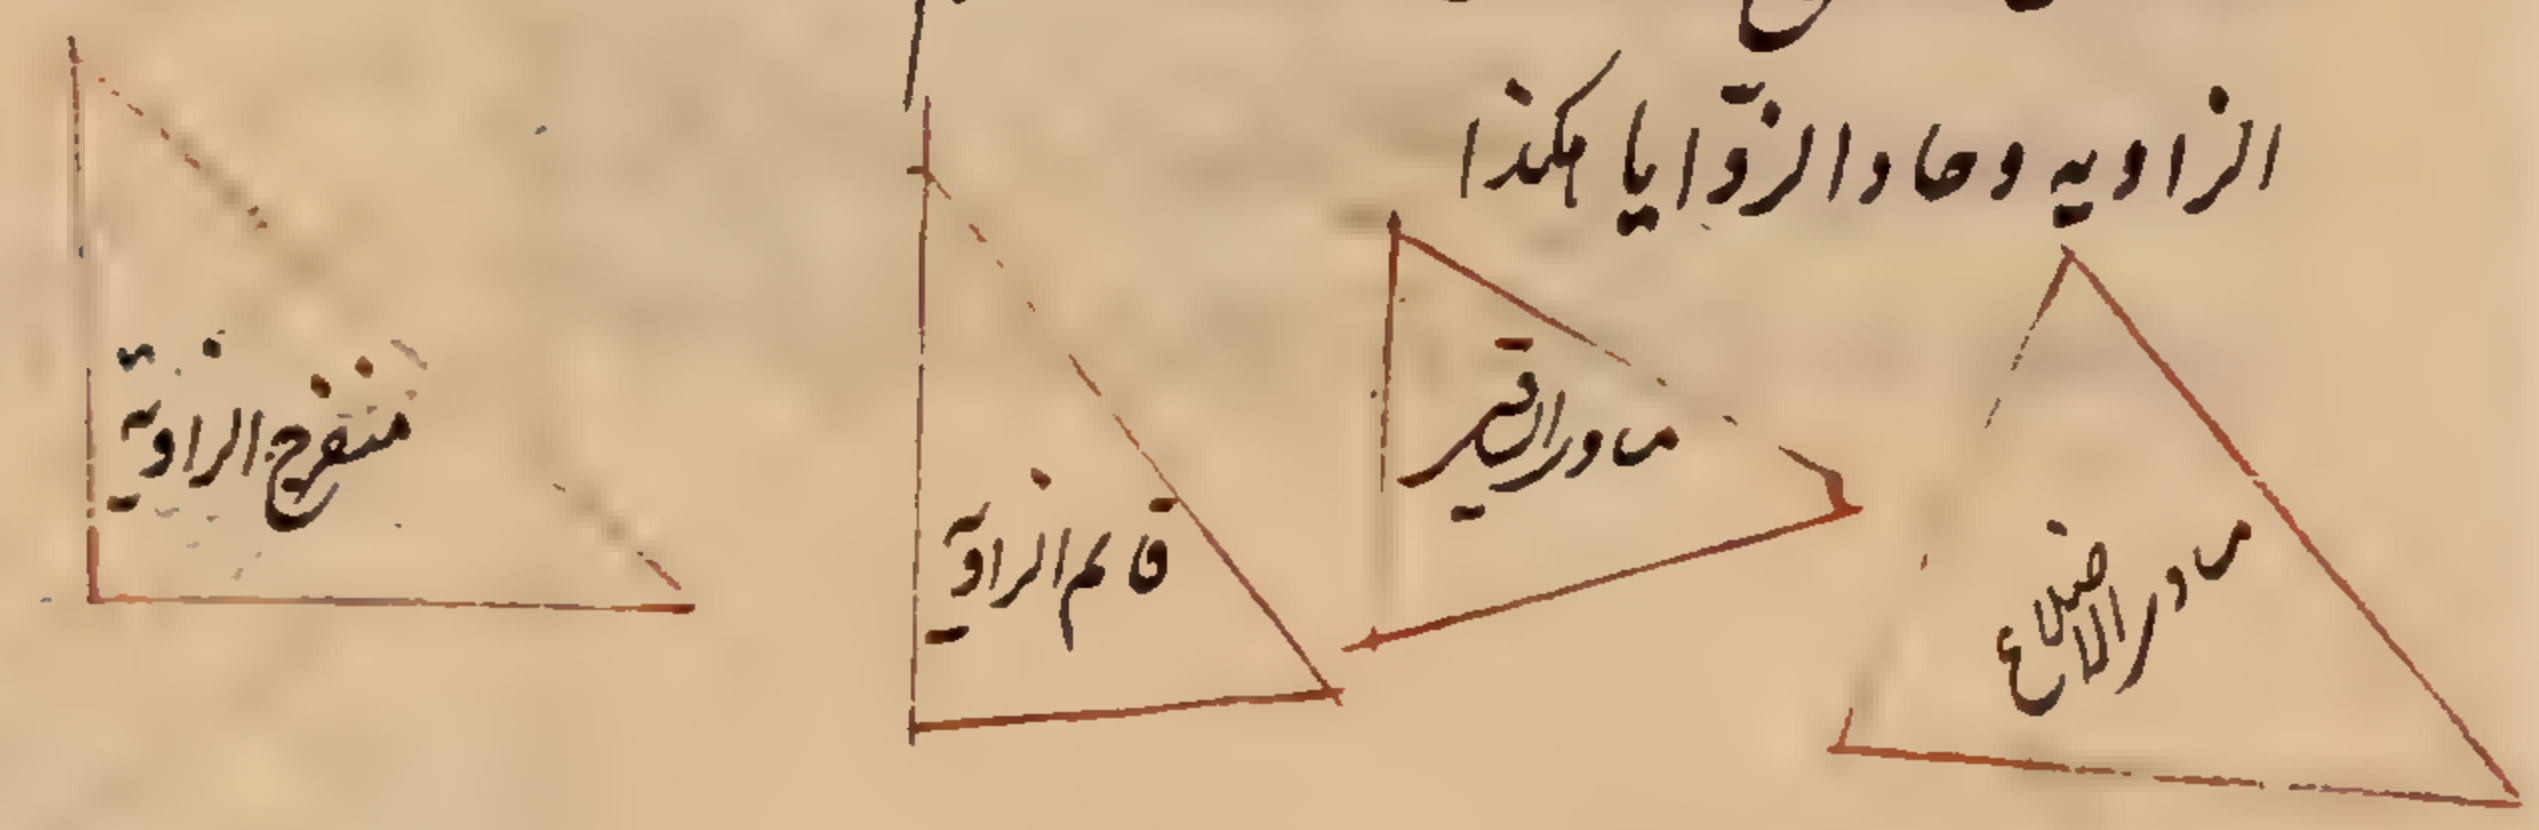 الزاويه وحاد الزّوايا هكذا
مساور الاضلاع
مساور الساقين
قائم الزاوية
منفرج الزاوية